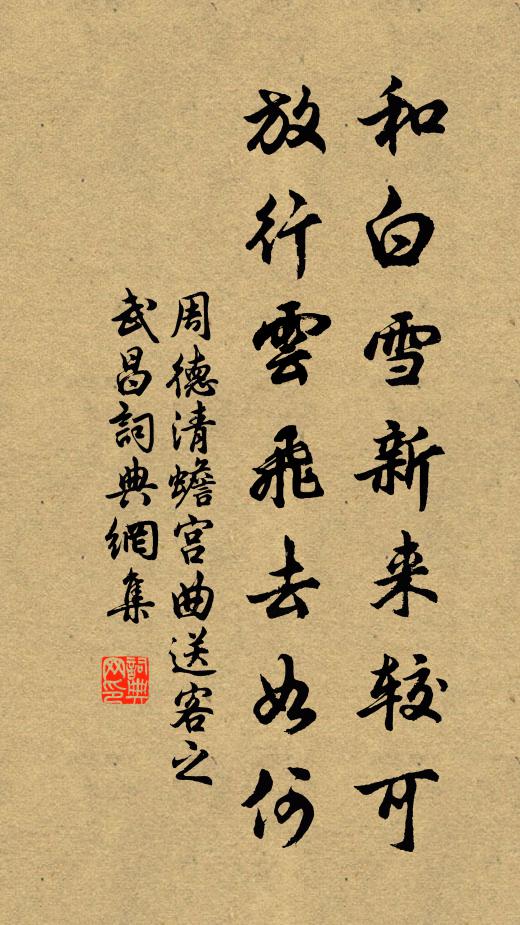 和白雪新来较可
放行雲飛去如何
周德清蟾宫曲送客之
武昌詞典網集
詞典網印